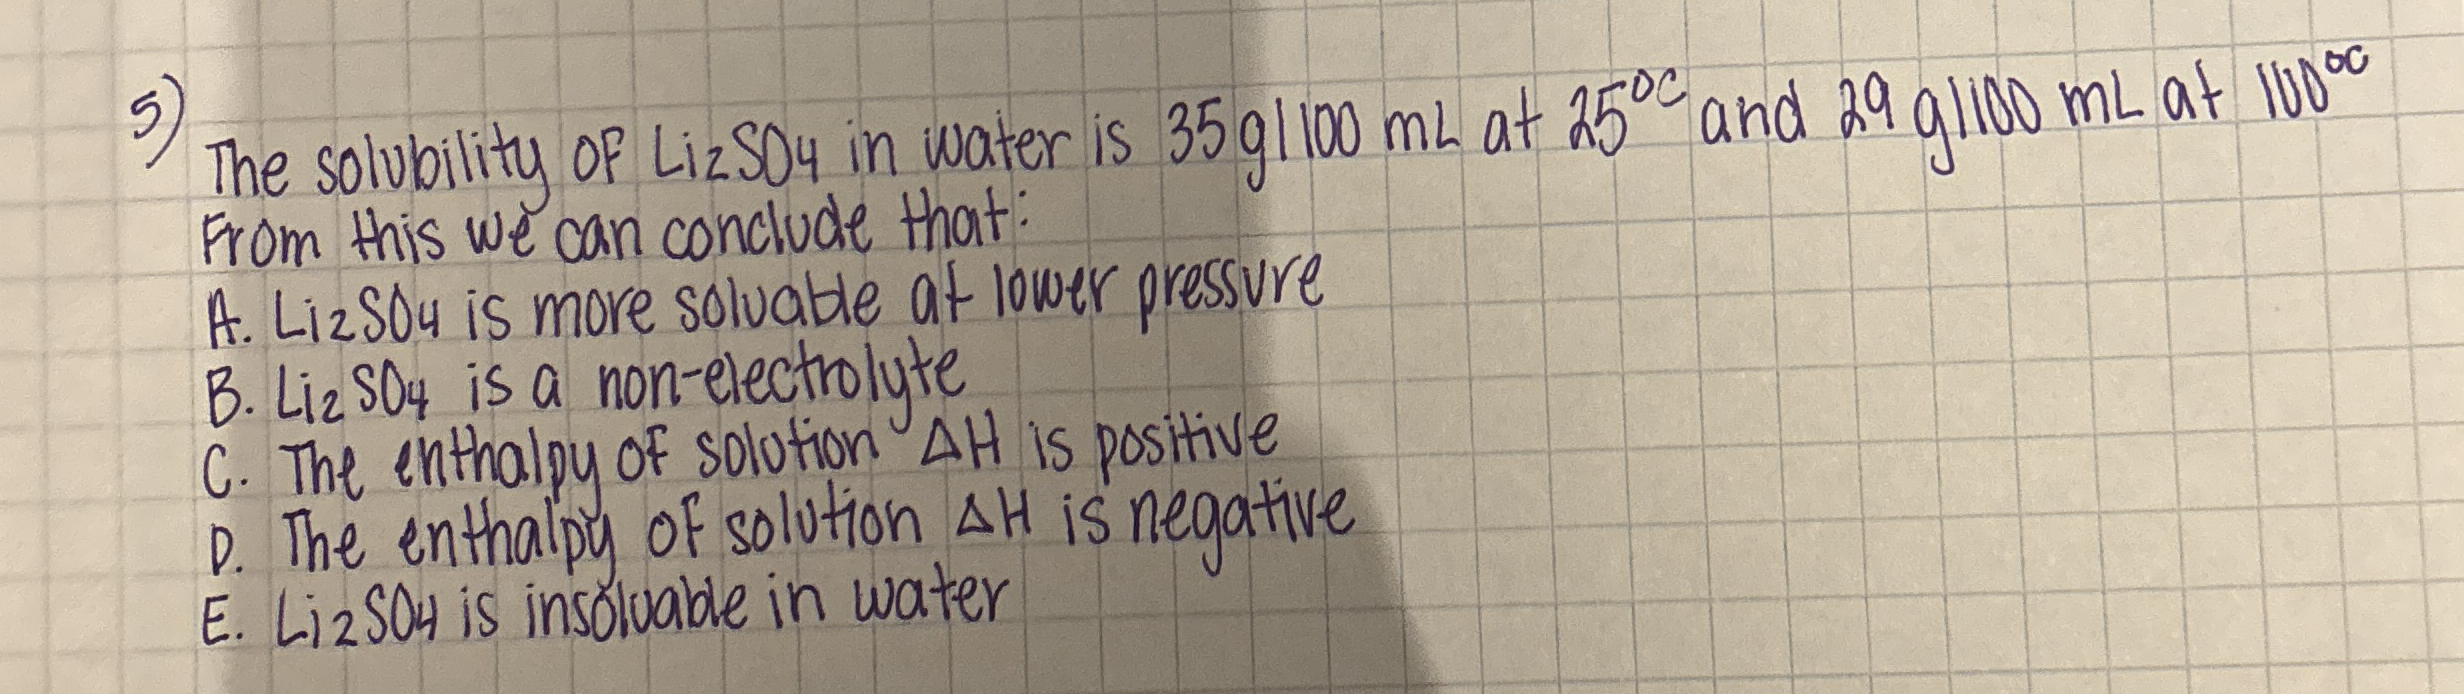 5)
The solubility OF Li2SO4 in water is 35g/100 mL at 25°C and 29 g/100 mL at 100°C
From this we can conclude that:
A. Li2SO4 is more soluable at lower pressure
B. Li2SO4 is a non-electrolyte
C. The enthalpy of solution ΔH is positive
D. The enthalpy of solution ΔH is negative
E. Li2SO4 is insoluable in water